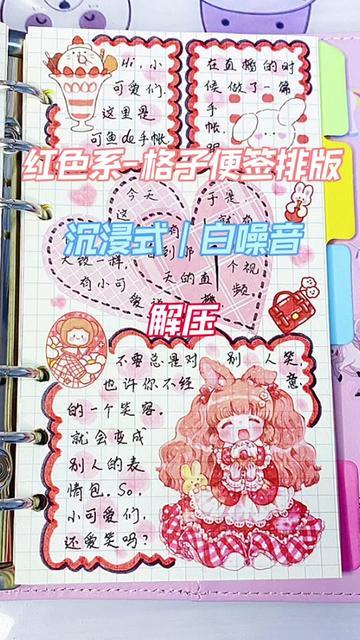 Hi,小
可爱们.
这里是
可鱼de手帐
在直播的时
候做了一篇
手
帐
红色系-格子便签排版
今天
于是
这
沉浸式｜白噪音
大致一样,
有小可
天的直
个视
爱说
播
频.
解压
不要总是对别人笑,
也许你不经意
的一个笑容.
就会变成
别人的表
情包.So,
小可爱们,
还爱笑吗?